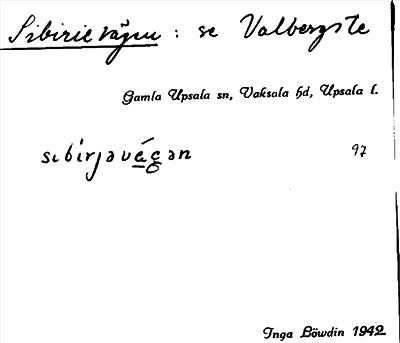 Sibirievägen : se Valbergste
Gamla Upsala sn, Vaksala hd, Upsala l.
sɩbírjəvǽgən 97
Inga Löwdin 1942